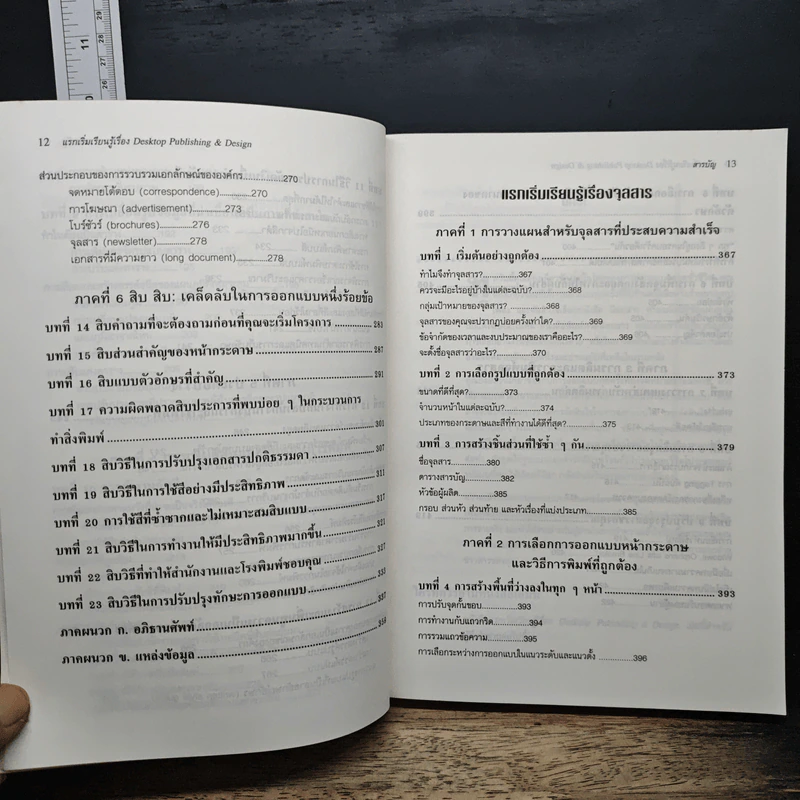 12 แรกเริ่มเรียนรู้เรื่อง Desktop Publishing & Design
ส่วนประกอบของการรวบรวมเอกลักษณ์ขององค์กร..................270
จดหมายโต้ตอบ (correspondence)...............270
การโฆษณา (advertisement)..............273
โบร์ชัวร์ (brochures)...............276
จุลสาร (newsletter)...............278
เอกสารที่มีความยาว (long document)...............278
ภาคที่ 6 สิบ สิบ: เคล็ดลับในการออกแบบหนึ่งร้อยข้อ
บทที่ 14 สิบคำถามที่จะต้องถามก่อนที่คุณจะเริ่มโครงการ ............ 283
บทที่ 15 สิบส่วนสำคัญของหน้ากระดาษ ............ 287
บทที่ 16 สิบแบบตัวอักษรที่สำคัญ ............ 291
บทที่ 17 ความผิดพลาดสิบประการที่พบบ่อย ๆ ในกระบวนการ
ทำสิ่งพิมพ์ ............ 301
บทที่ 18 สิบวิธีในการปรับปรุงเอกสารปกติธรรมดา ............ 307
บทที่ 19 สิบวิธีในการใช้สีอย่างมีประสิทธิภาพ ............ 311
บทที่ 20 การใช้สีที่ซ้ำซากและไม่เหมาะสมสิบแบบ ............ 317
บทที่ 21 สิบวิธีในการทำงานให้มีประสิทธิภาพมากขึ้น ............ 321
บทที่ 22 สิบวิธีที่ทำให้สำนักงานและโรงพิมพ์ชอบคุณ ............ 327
บทที่ 23 สิบวิธีในการปรับปรุงทักษะการออกแบบ ............
ภาคผนวก ก. อภิธานศัพท์ ............ 337
ภาคผนวก ข. แหล่งข้อมูล ............ 359
สารบัญ 13
แรกเริ่มเรียนรู้เรื่องจุลสาร
ภาคที่ 1 การวางแผนสำหรับจุลสารที่ประสบความสำเร็จ
บทที่ 1 เริ่มต้นอย่างถูกต้อง ............ 367
ทำไมจึงทำจุลสาร?............367
ควรจะมีอะไรอยู่บ้างในแต่ละฉบับ?............368
กลุ่มเป้าหมายของจุลสาร? ............368
จุลสารของคุณจะปรากฏบ่อยครั้งเท่าใด? ............369
ข้อจำกัดของเวลาและงบประมาณของเราคืออะไร?............369
จะตั้งชื่อจุลสารว่าอะไร?............370
บทที่ 2 การเลือกรูปแบบที่ถูกต้อง ............ 373
ขนาดที่ดีที่สุด?............373
จำนวนหน้าในแต่ละฉบับ?............374
ประเภทของกระดาษและสีที่ทำงานได้ดีที่สุด? ............375
บทที่ 3 การสร้างชิ้นส่วนที่ใช้ซ้ำ ๆ กัน ............ 379
ชื่อจุลสาร............380
ตารางสารบัญ............382
หัวข้อผู้ผลิต............385
กรอบ ส่วนหัว ส่วนท้าย และหัวเรื่องที่แบ่งประเภท............385
ภาคที่ 2 การเลือกการออกแบบหน้ากระดาษ
และวิธีการพิมพ์ที่ถูกต้อง
บทที่ 4 การสร้างพื้นที่ว่างลงในทุก ๆ หน้า ............ 393
การปรับจุดกั้นขอบ............393
การทำงานกับแถวกริด............394
การรวมแถวข้อความ............395
การเลือกระหว่างการออกแบบในแนวระดับและแนวตั้ง ............396